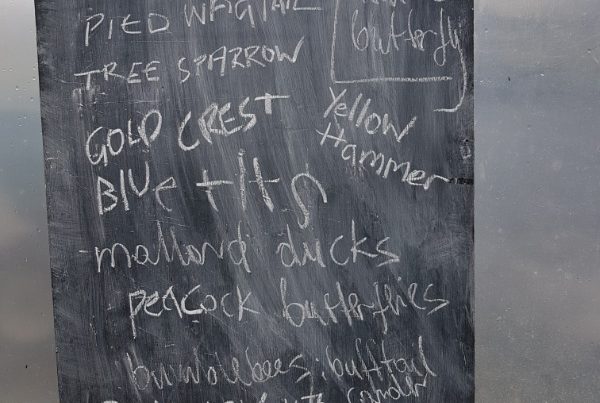 PIED WAGTAIL
TREE SPARROW
butterfly
GOLD CREST
Yellow
Hammer
BLUe tits
- mallard ducks
- PEACOCK butterflies
bumblebees: bufftail